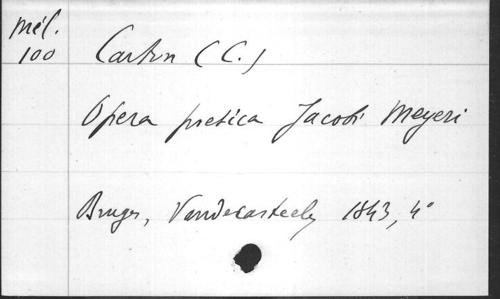 Mél.
100
Carton (C.)
Opera poetica Jacobi Meyeri
Bruges, Vandecasteele 1843, 4°